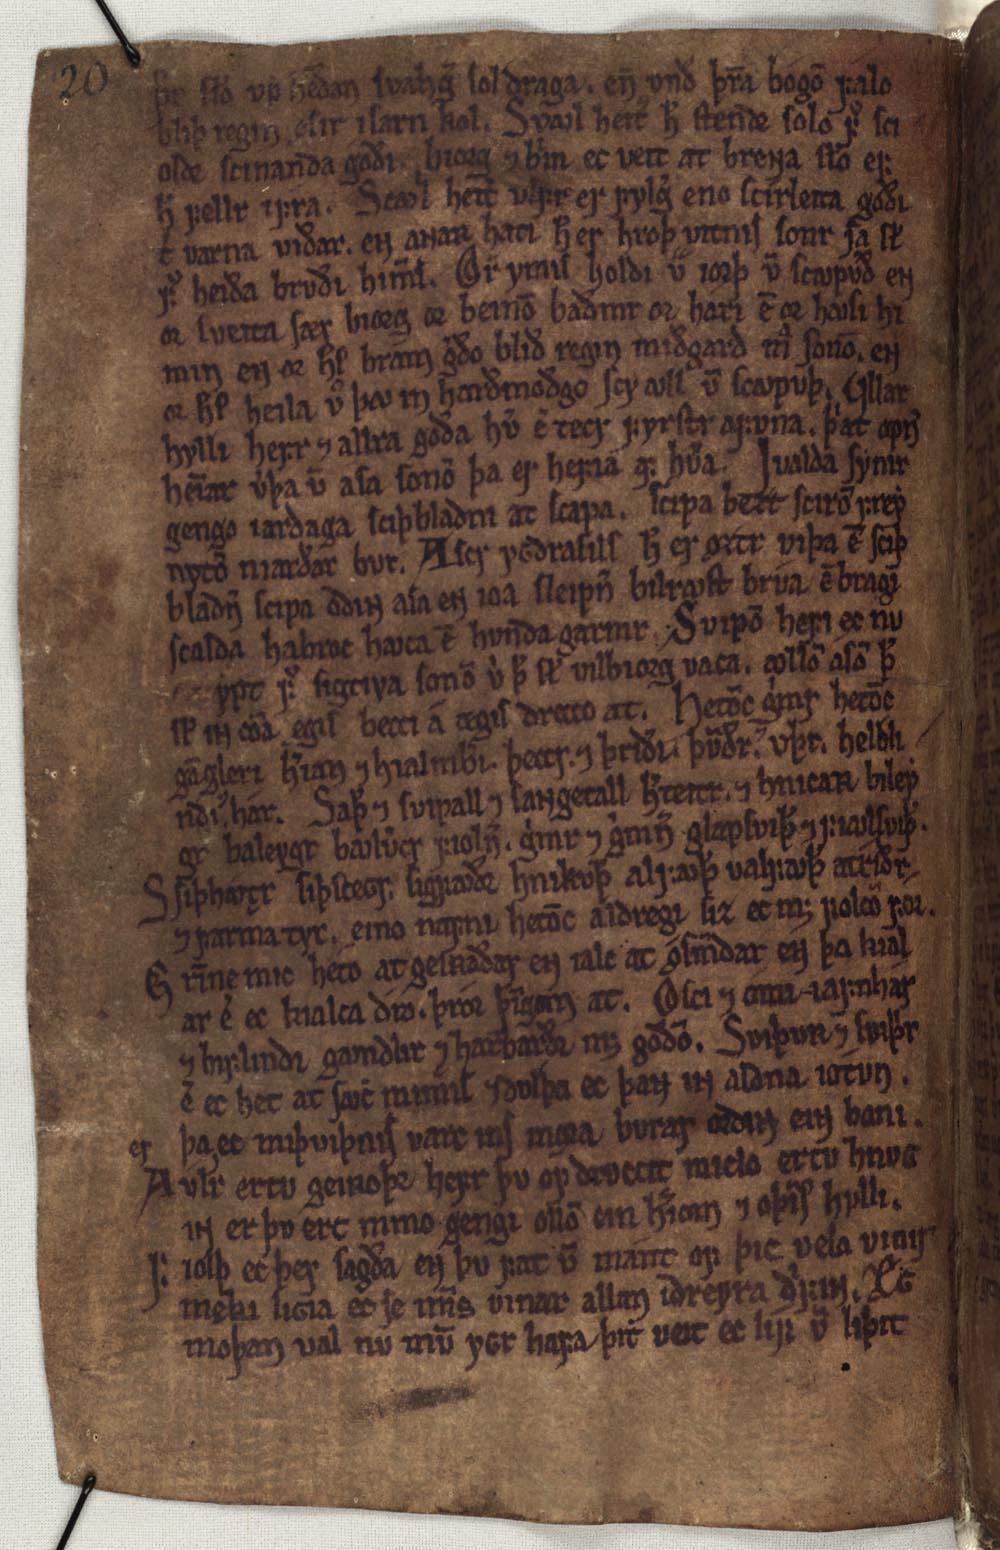 20
þr sco up heðan svangͥ sol draga. en und þra bogō falo
bliþ regin esir isarn kol. Svaul heitͥ h stendr solo fͦ sci
olde scinanda goði. biorg ⁊ bͥm ec veit at breɴa sco er
h fellr ifra. Scaul heitͥ ulfr er fylgͥ eno scirleita goði
t varna viðar. en aɴaʀ hati h er hroþvitnis sonr sa sl
fͥ heiða bruði himͥs. Or ymis holdi ū iorþ ū scaupuð en
or sveita sær biorg or beinō baðmr or hari ē or hausi hi
min en or hͥs bram gðo blið regin miðgard mͣ sonō. en
or hͥs heila ū þau in harðmoðgo scy aull ū scaupuþ. Ullar
hylli hefr ⁊ allra goða hͥ ē tecr fyrstr afuna. þat opn
heiar vͥþa ū asa sonō þa er hefia af hͥa. Ivalda synir
gengo iardaga sciþblaðni at scapa. scipa bezt scirō frey
nytō niarðar bur. Ascr ygdrasils h er oztr viþa ē sciþ
blaðn scipa oðin asa en ioa sleipn bilraust brua ē bragi
scalda habroc hauca ē hunda garmr. Svipō hefi ec nu
ypt fͥ sigtiva sonō v þ sl vilbiorg vaca. ollō asō þ
sl in coa egis becci a ægis drecco at. Hetōc grimr hetōc
gāgleri hͥian ⁊ hialmbͥi. þeccr ⁊ þriði. þuðr ⁊ uþr. helbli
ndi ⁊ hár. Saþ ⁊ svipall ⁊ sangetall hͥteitr ⁊ hnicaʀ biley
gr baleygr baulvͥcr fiolnͥ. gͥmr ⁊ gͥmn glapsviþ ⁊ fiaulsviþ.
Ssiþhauttr siþsceggr sigfauðr hnikuþ alfauþ valfauþ atriðr
⁊ farmatyr. eino nafni hetōc aldregi siz ec mͥ folcō for.
G rīne mic heto at geirraðar en ialc at osmundar en þa kial
ar ē ec kialca dro. þror þingom at. Osci ⁊ omi iafnhar
⁊ biflindi gaundlir ⁊ harbarðr mͥ goðō. Sviþuʀ ⁊ sviþr
ē ec het at saucmimis ⁊ dulþa ec þan in aldna iotun.
er þa ec miþviþnis varc ins mæra burar orðin ein bani.
A ulr ertu geirroþr hefr þu of druccit miclo ertu hnug
in er þu ert mino gengi ollō einhͥiom ⁊ oþis hylli.
F iolþ ec þer sagða en þu fat ū mant of þic vela vinir
mæki liggia ec se mīs vinar allan idreyra drifin. Eg
moþan val nu mū yggr hafa þit veit ec lif ū liþit